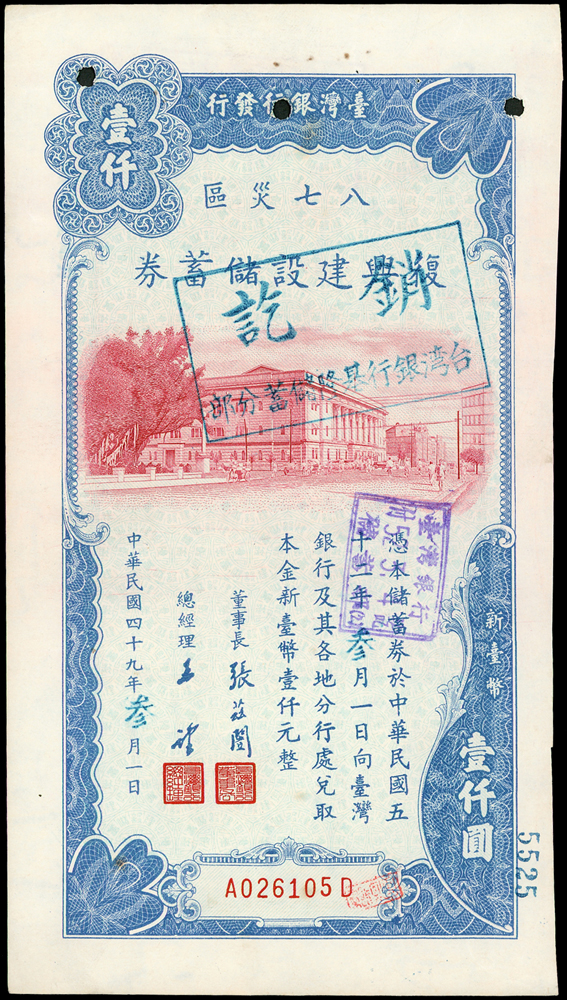 臺灣銀行發行
壹仟
八七災區
復興建設儲蓄券
銷訖
台湾銀行基隆儲蓄分部
臺灣銀行
新臺幣
壹仟圓
憑本儲蓄券於中華民國五
十二年叁月一日向臺灣
銀行及其各地分行處兌取
本金新臺幣壹仟元整
董事長 張茲闓
總經理
中華民國四十九年叁月一日
5525
A026105D